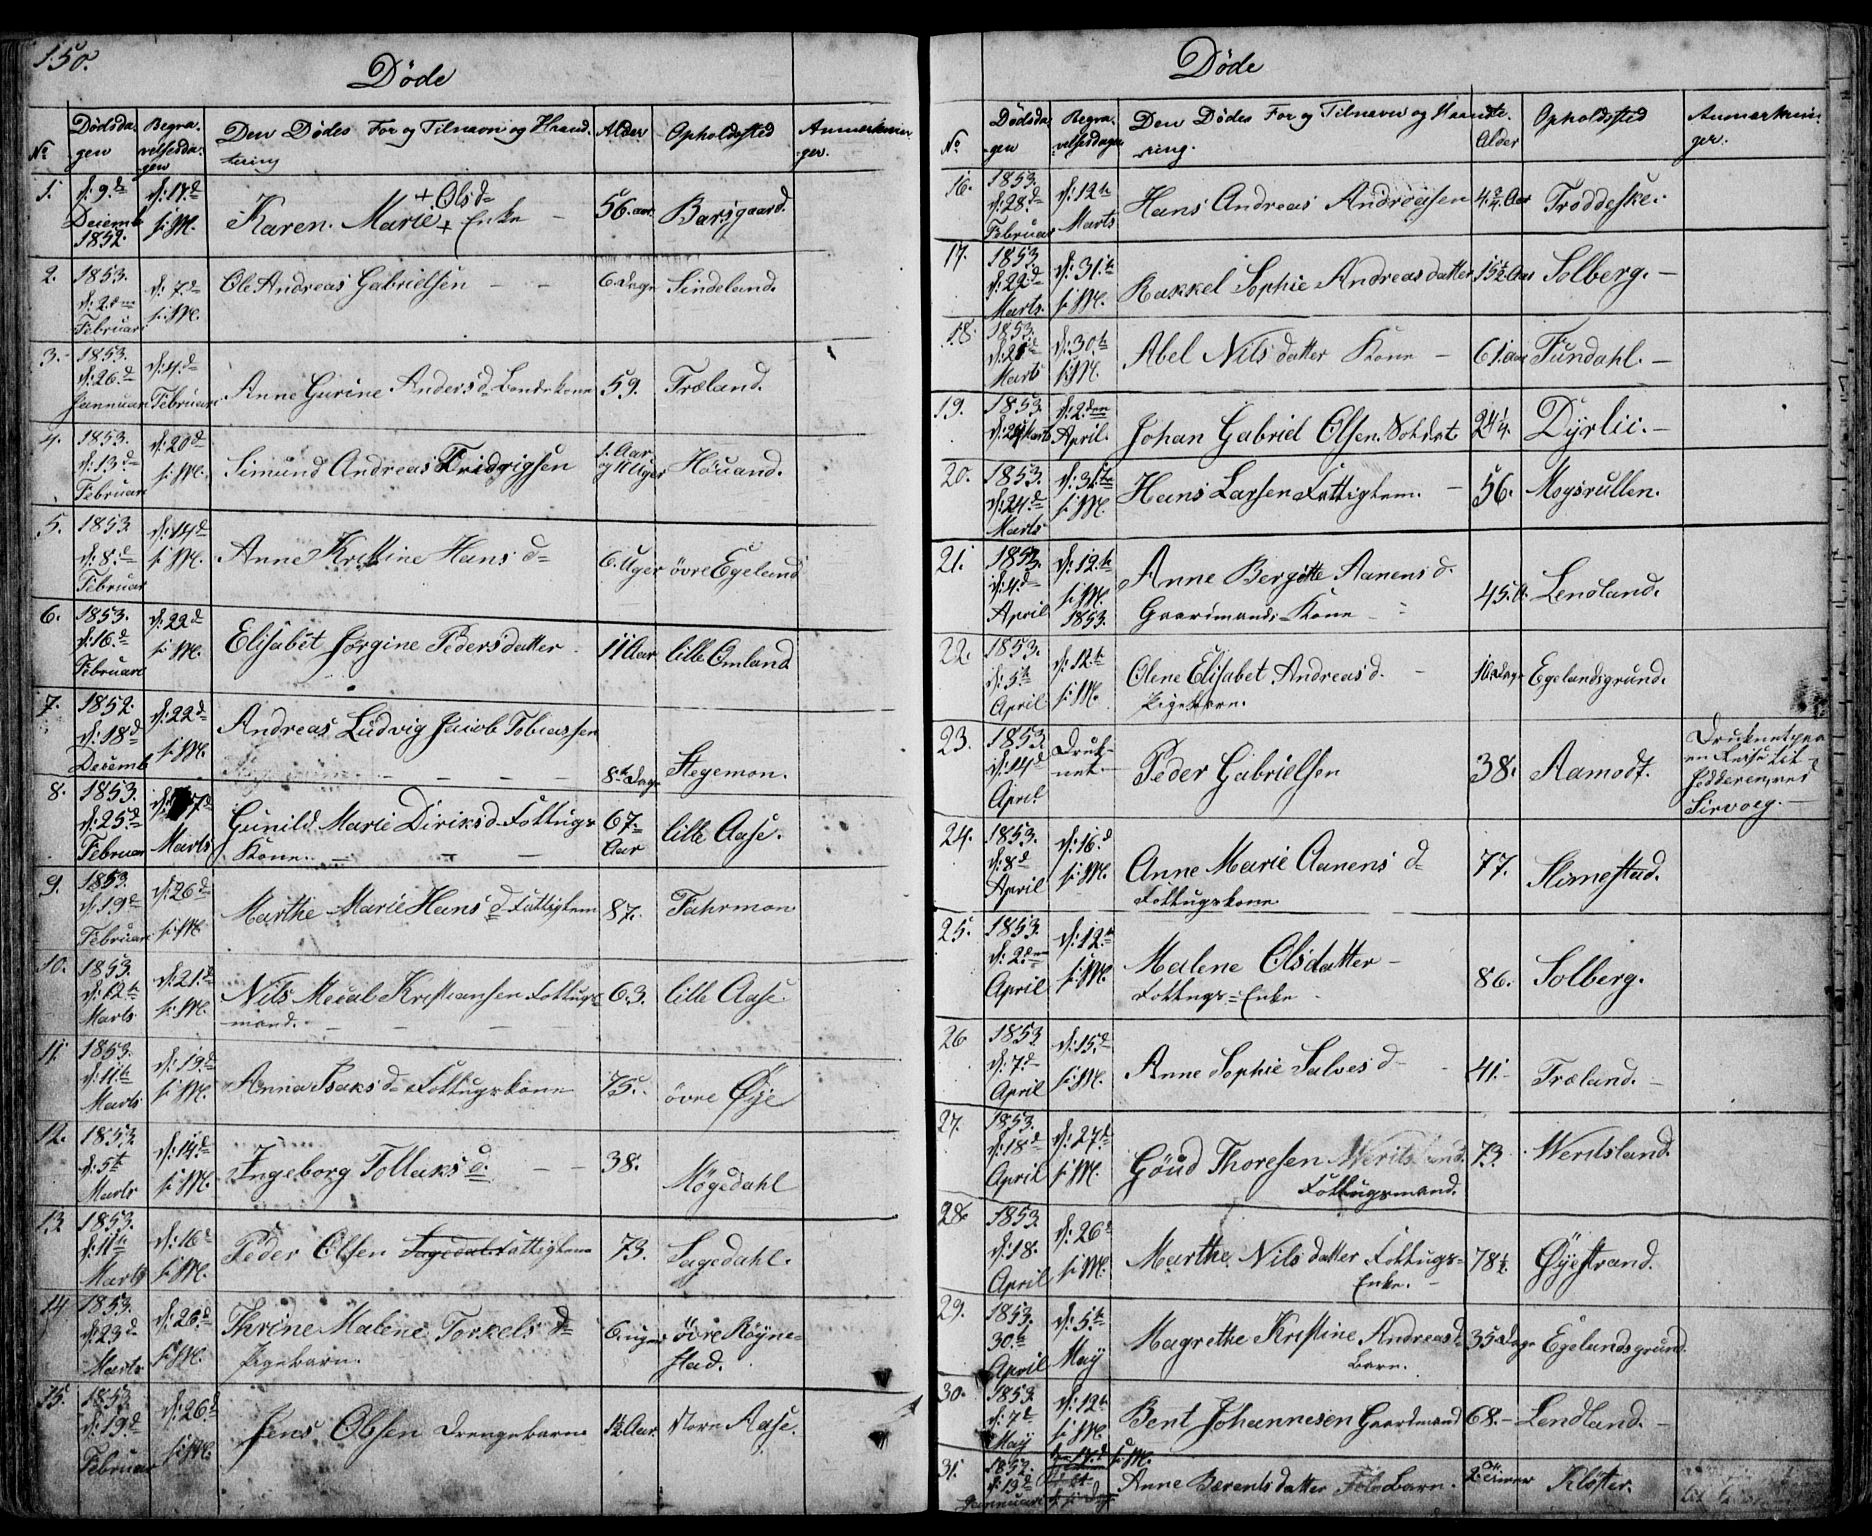 150.
Døde
No
Dødsda-
gen
Begra-
velsesda-
gen
Den Dødes For og Tilnavn og Haand-
tering
Alder
Opholdssted
Anmerknin-
ger.
1.
d: 9de
Decemb
1852.
d: 17d
s: M.
Karen Marie + Olsd
+ Enke
56. aar
Barsgaard.
2.
1853.
d: 2den
Februari
d: 7.d
s: M.
Ole Andreas Gabrielsen
6 Dage
Sindeland.
3.
1853.
d: 26.d
Januari
d: 4.d
Februari
Anne Gurine Anders d Bondekone
59.
Træland.
4.
1853.
d: 13.d
Februari
d: 20d
s: M.
Simund Andreas Fridrigsen
1. Aar
og 11 Uger
Høuand.
5.
1853
d: 8.d
Februar
d: 14d
s: M.
Anne Kristine Hans d
6. Uger
øvre Egeland
6.
1853.
d: 16.d
Februari
d: 22d
s: M.
Elisabet Jørgine Pedersdatter
11 Aar
lille Omland
7.
1852.
d: 18d
Decemb
d: 22d
s: M.
Andreas Ludvig Jacob Tobiassen
8te Dage
Stegemon.
8.
1853.
d: 25d
Februar
7d
Marts
Gunild Marie Diriks d Fottugs
Kone.
67.
Aar
lille Aase.
9.
1853.
d: 19d
Februari
d: 26d
s: M.
Marthe Marie Hans d Fattiglem
87.
Fahrmon
10.
1853.
d: 12te
Marts
d: 21.d
s: M.
Nils Mecal Kristiansen Fottugs
mand.
63.
lille Aase.
11.
1853.
d: 11te
Marts
d: 19.d
s: M.
Anna Isaks d Fottugskone
75.
øvre Øye
12.
1853.
d: 5te
Marts
d: 14d
s: M.
Ingeborg Tollaks d.
38.
Møgedahl
13
1853.
d: 11te
Marts
d: 16d
s: M.
Peder Olsen Sagedal Fattiglem
73.
Sagedahl.
14
1853.
d: 23d
Marts
d: 26d
s: M.
Thrine Malene Torkels d
Pigebarn.
6 uger
øvre Røyne-
stad.
15.
1853.
d: 19d
Februar
d: 26.d
s: M.
Jens Olsen Drengebarn
1½ Aar.
Store Aase.
Døde
No
Dødsda-
gen
Begra-
velsesdagen
Den Dødes For og Tilnavn og Haandte-
ring.
Alder
Opholdssted
Anmerknin-
ger.
16.
1853.
d: 28.d
Februar
d: 12te
Marts
Hans Andreas Andreasen
4¾ Aar
Trøddeske.
17.
1853
d: 22d
Marts
d: 31.te
s: M.
Rakkel Sophie Andreasdatter
15½ Aar
Solberg.
18.
1853.
Marts
d: 30.te
s: M.
Abel Nilsdatter Kone
61. aar
Fundahl.
19.
1853.
d: 24 Marts
d: 2den
April.
Johan Gabriel Olsen. Soldat
24¼.
Dyrlie.
20.
1853.
d: 24.d
Marts
d: 31.te
s: M.
Hans Larsen Fattiglem.
56.
Mogsrullen.
21.
1853.
d: 4.d
April
d: 12.te
s: M.
1853.
Anne Bergitte Aanens d.
Gaardmands Kone
45.
Lendland.
22.
1853.
d: 5te
April
d: 12.te
s: M.
Olene Elisabet Andreas d.
Pigebarn.
Egelandsgrund.
23.
1853
d: 14d
April
Druk-
net.
Peder Gabrielsen
38.
Aamodt.
Druknet paa
en Reise til
Jedderen, ved
Sirvaag.
24.
1853.
d: 8d
April
d: 16.d
s: M.
Anne Marie Aanens d
Fottugskone
77.
Slimestad.
25.
1853.
d: 2.den
April
d: 12.te
s: M.
Malene Olsdatter
Fottugs-Enke
86.
Solberg.
26
1853
d: 7.d
April
d: 15.d
s: M.
Anne Sophie Salves d
41.
Træland.
27.
1853.
d: 18d
April
d: 27d
s: M.
Goud Thoresen
Fottugsmand.
73.
Werdsland.
28.
1853.
d: 18.
April
d: 26
s: M.
Marthe Nilsdatter Fottugs-
Enke.
78½
Øyestrand.
29.
1853.
30.te
April
d: 5.te
May
Magrethe Kristine Andreas d
Barn.
35 Dage
Egelandsgrund.
30.
1853.
d: 7.d
May
d: 12te
s: M.
Bent Johannesen Gaardmand
68.
Lendland.
31.
1853.
d: 19d
Januari
s: M.
Anne Berentsdatter Barn.
Kloster.